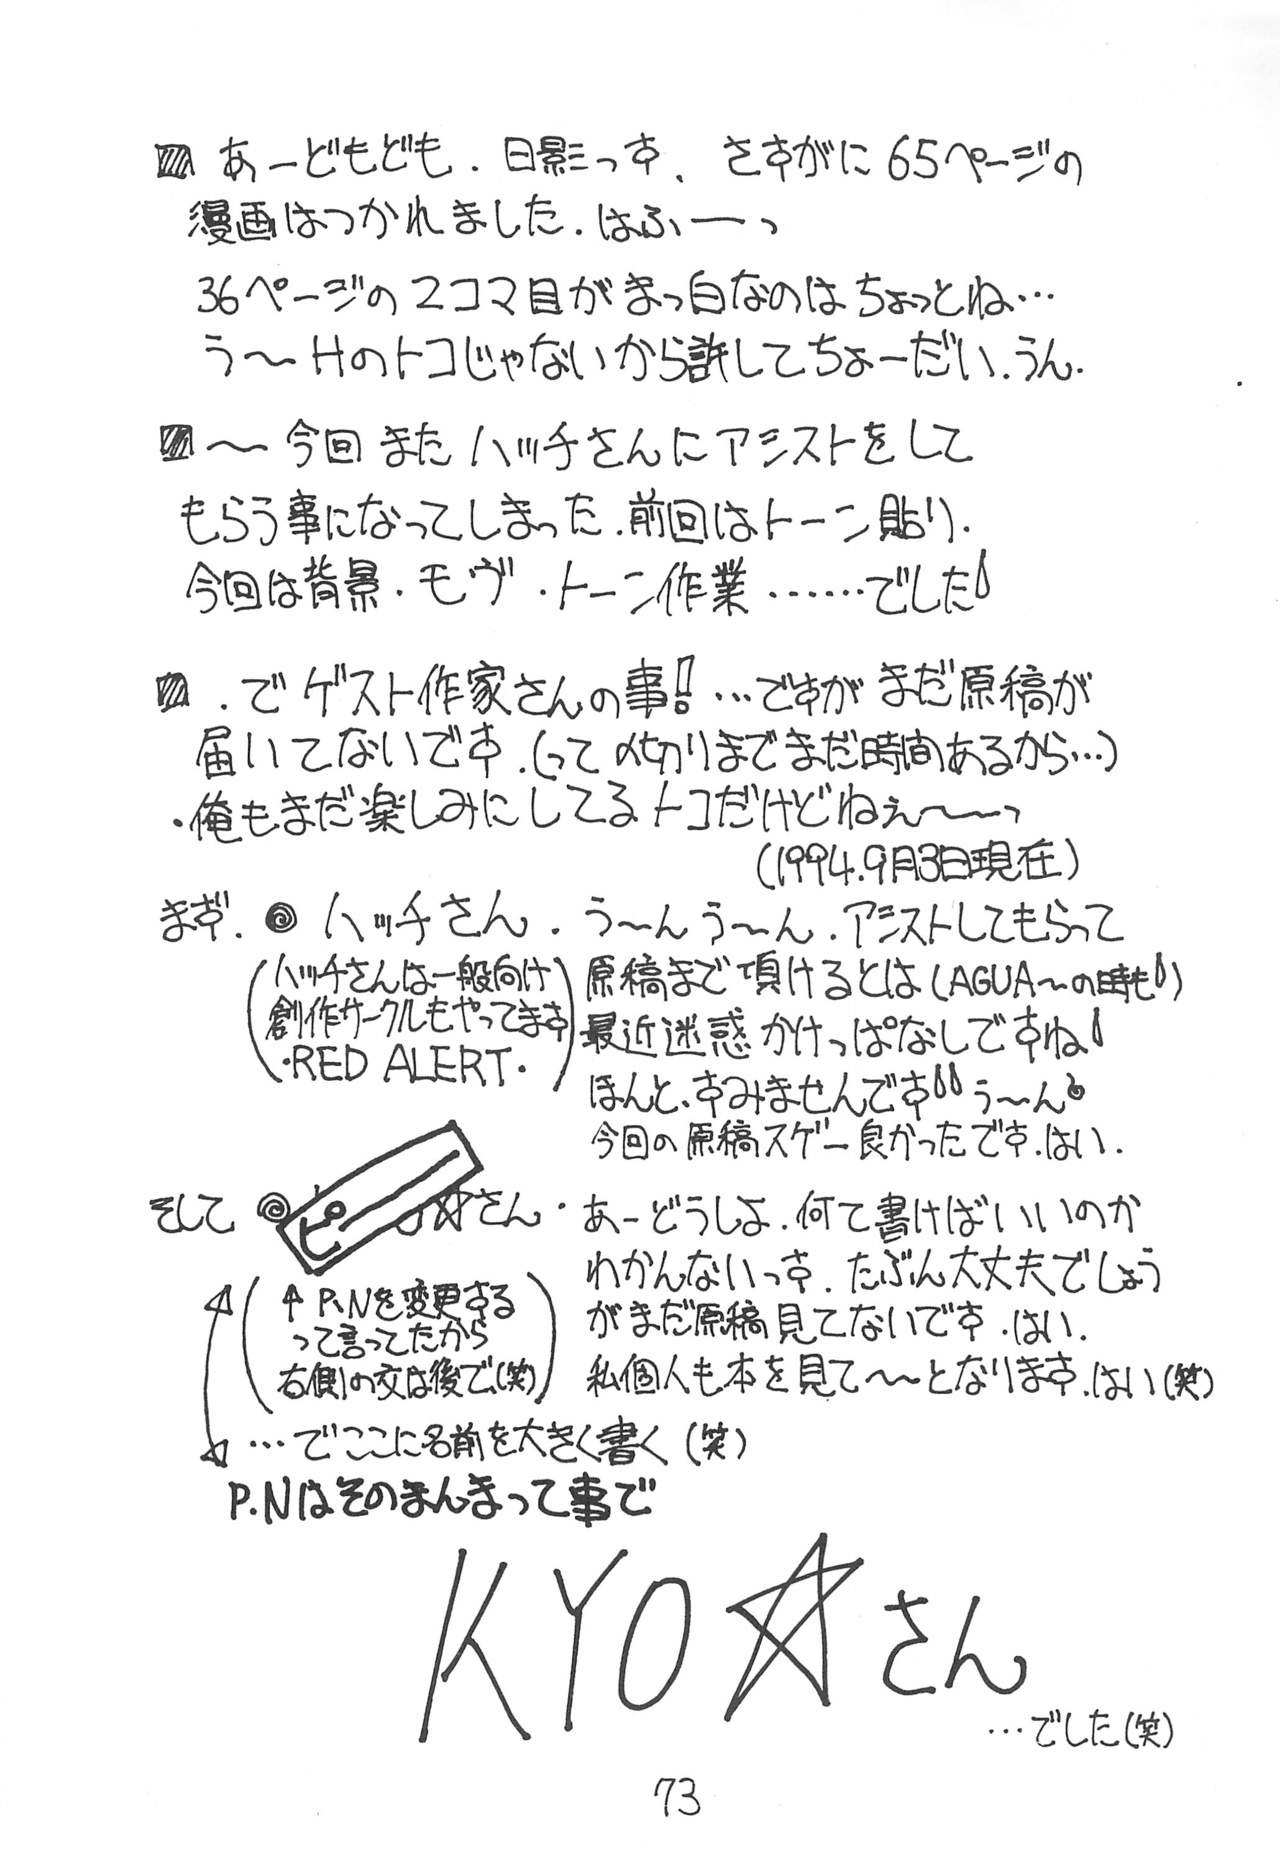 あーどもども．日影っす、さすがに65ページの
漫画はつかれました．はふーーっ
36ページの2コマ目がまっ白なのはちょっとね…
う〜Hのトコじゃないから許してちょーだい．うん．
〜今回またハッチさんにアシストをして
もらう事になってしまった．前回はトーン貼り．
今回は背景・モヴ・トーン作業………でした!
．でゲスト作家さんの事!…ですがまだ原稿が
届いてないです．(って〆切りまでまだ時間あるから…)
・俺もまだ楽しみにしてるトコだけどねぇ〜〜っ
(1994.9月3日現在)
まず．◎ハッチさん．
(ハッチさんは一般向け
創作サークルもやってます
・RED ALERT・)
う〜んう〜ん．アシストしてもらって
原稿まで頂けるとは(AGUA〜の時も!)
最近迷惑かけっぱなしですね!
ほんと、すみませんです!!う〜ん
今回の原稿スゲー良かったです．はい．
そして◎ ヒ ☆さん・
(↑P.Nを変更する
って言ってたから
右側の文は後で(笑))
あーどうしよ．何て書けばいいのか
わかんないっす．たぶん大丈夫でしょう
がまだ原稿見てないです．はい．
私個人も本を見て〜〜となります．はい(笑)
…でここに名前を大きく書く(笑)
P.Nはそのまんまって事で
KYO☆さん
…でした(笑)
73